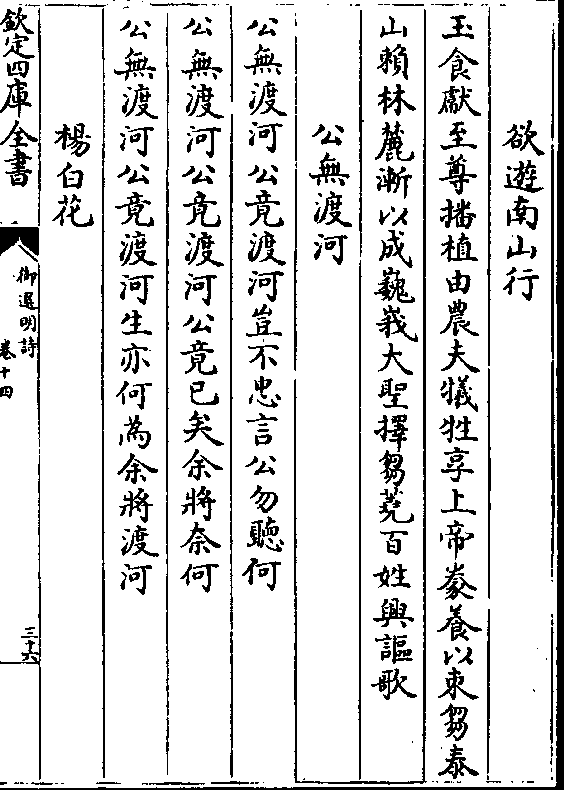 欲遊南山行
玉食獻至尊播植由農夫犧牲享上帝豢養以束芻泰
山賴林麓漸以成巍峩大聖擇芻蕘百姓興謳歌
公無渡河
公無渡河公竟渡河豈不忠言公勿聽何
公無渡河公竟渡河公竟已矣余將奈何
公無渡河公竟渡河生亦何為余將渡河
楊白花
欽定四庫全書
御選明詩
卷十四
三十六